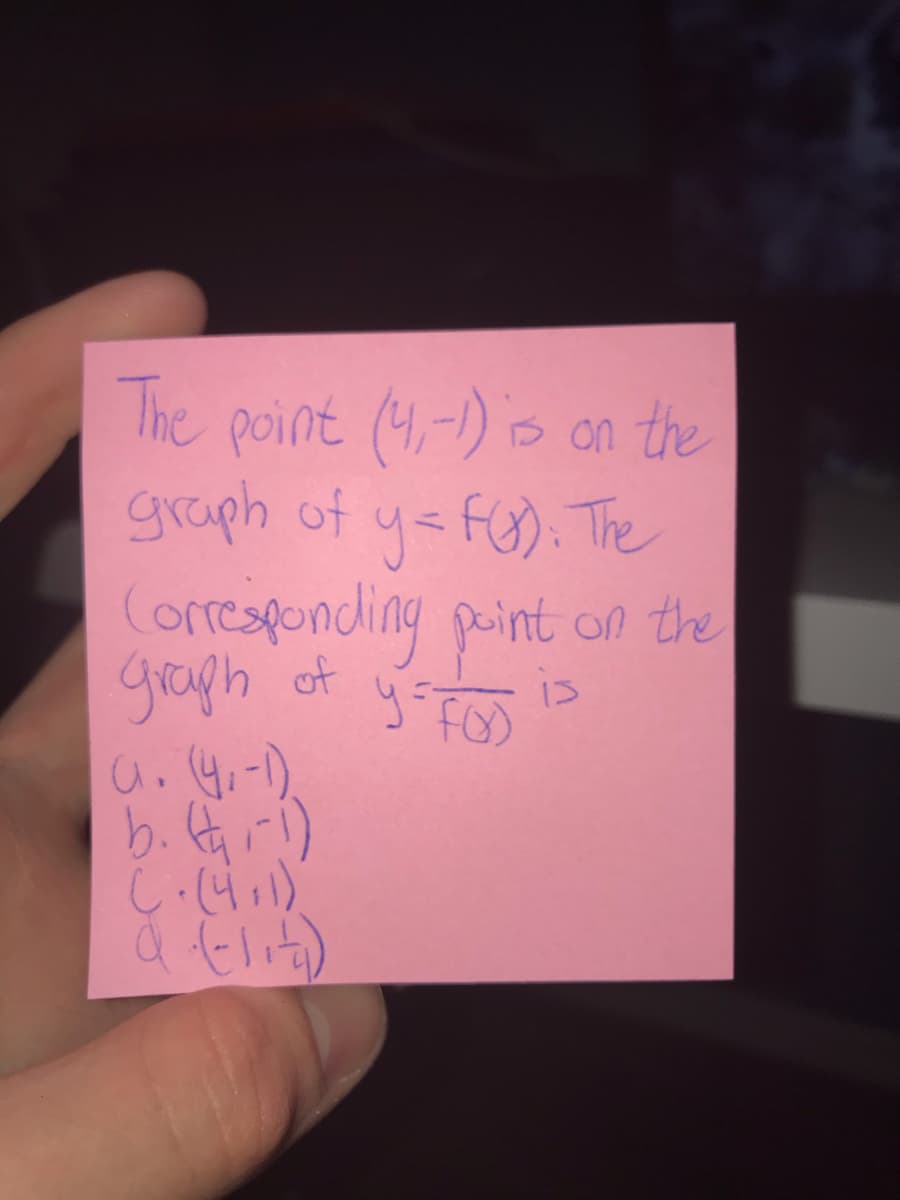 The point (4,-1) is on the
graph of y = f(x). The
Corresponding point on the
graph of y = 1/f(x) is
a. (4,-1)
b. (1/4,-1)
c. (4,1)
d. (-1,1/4)